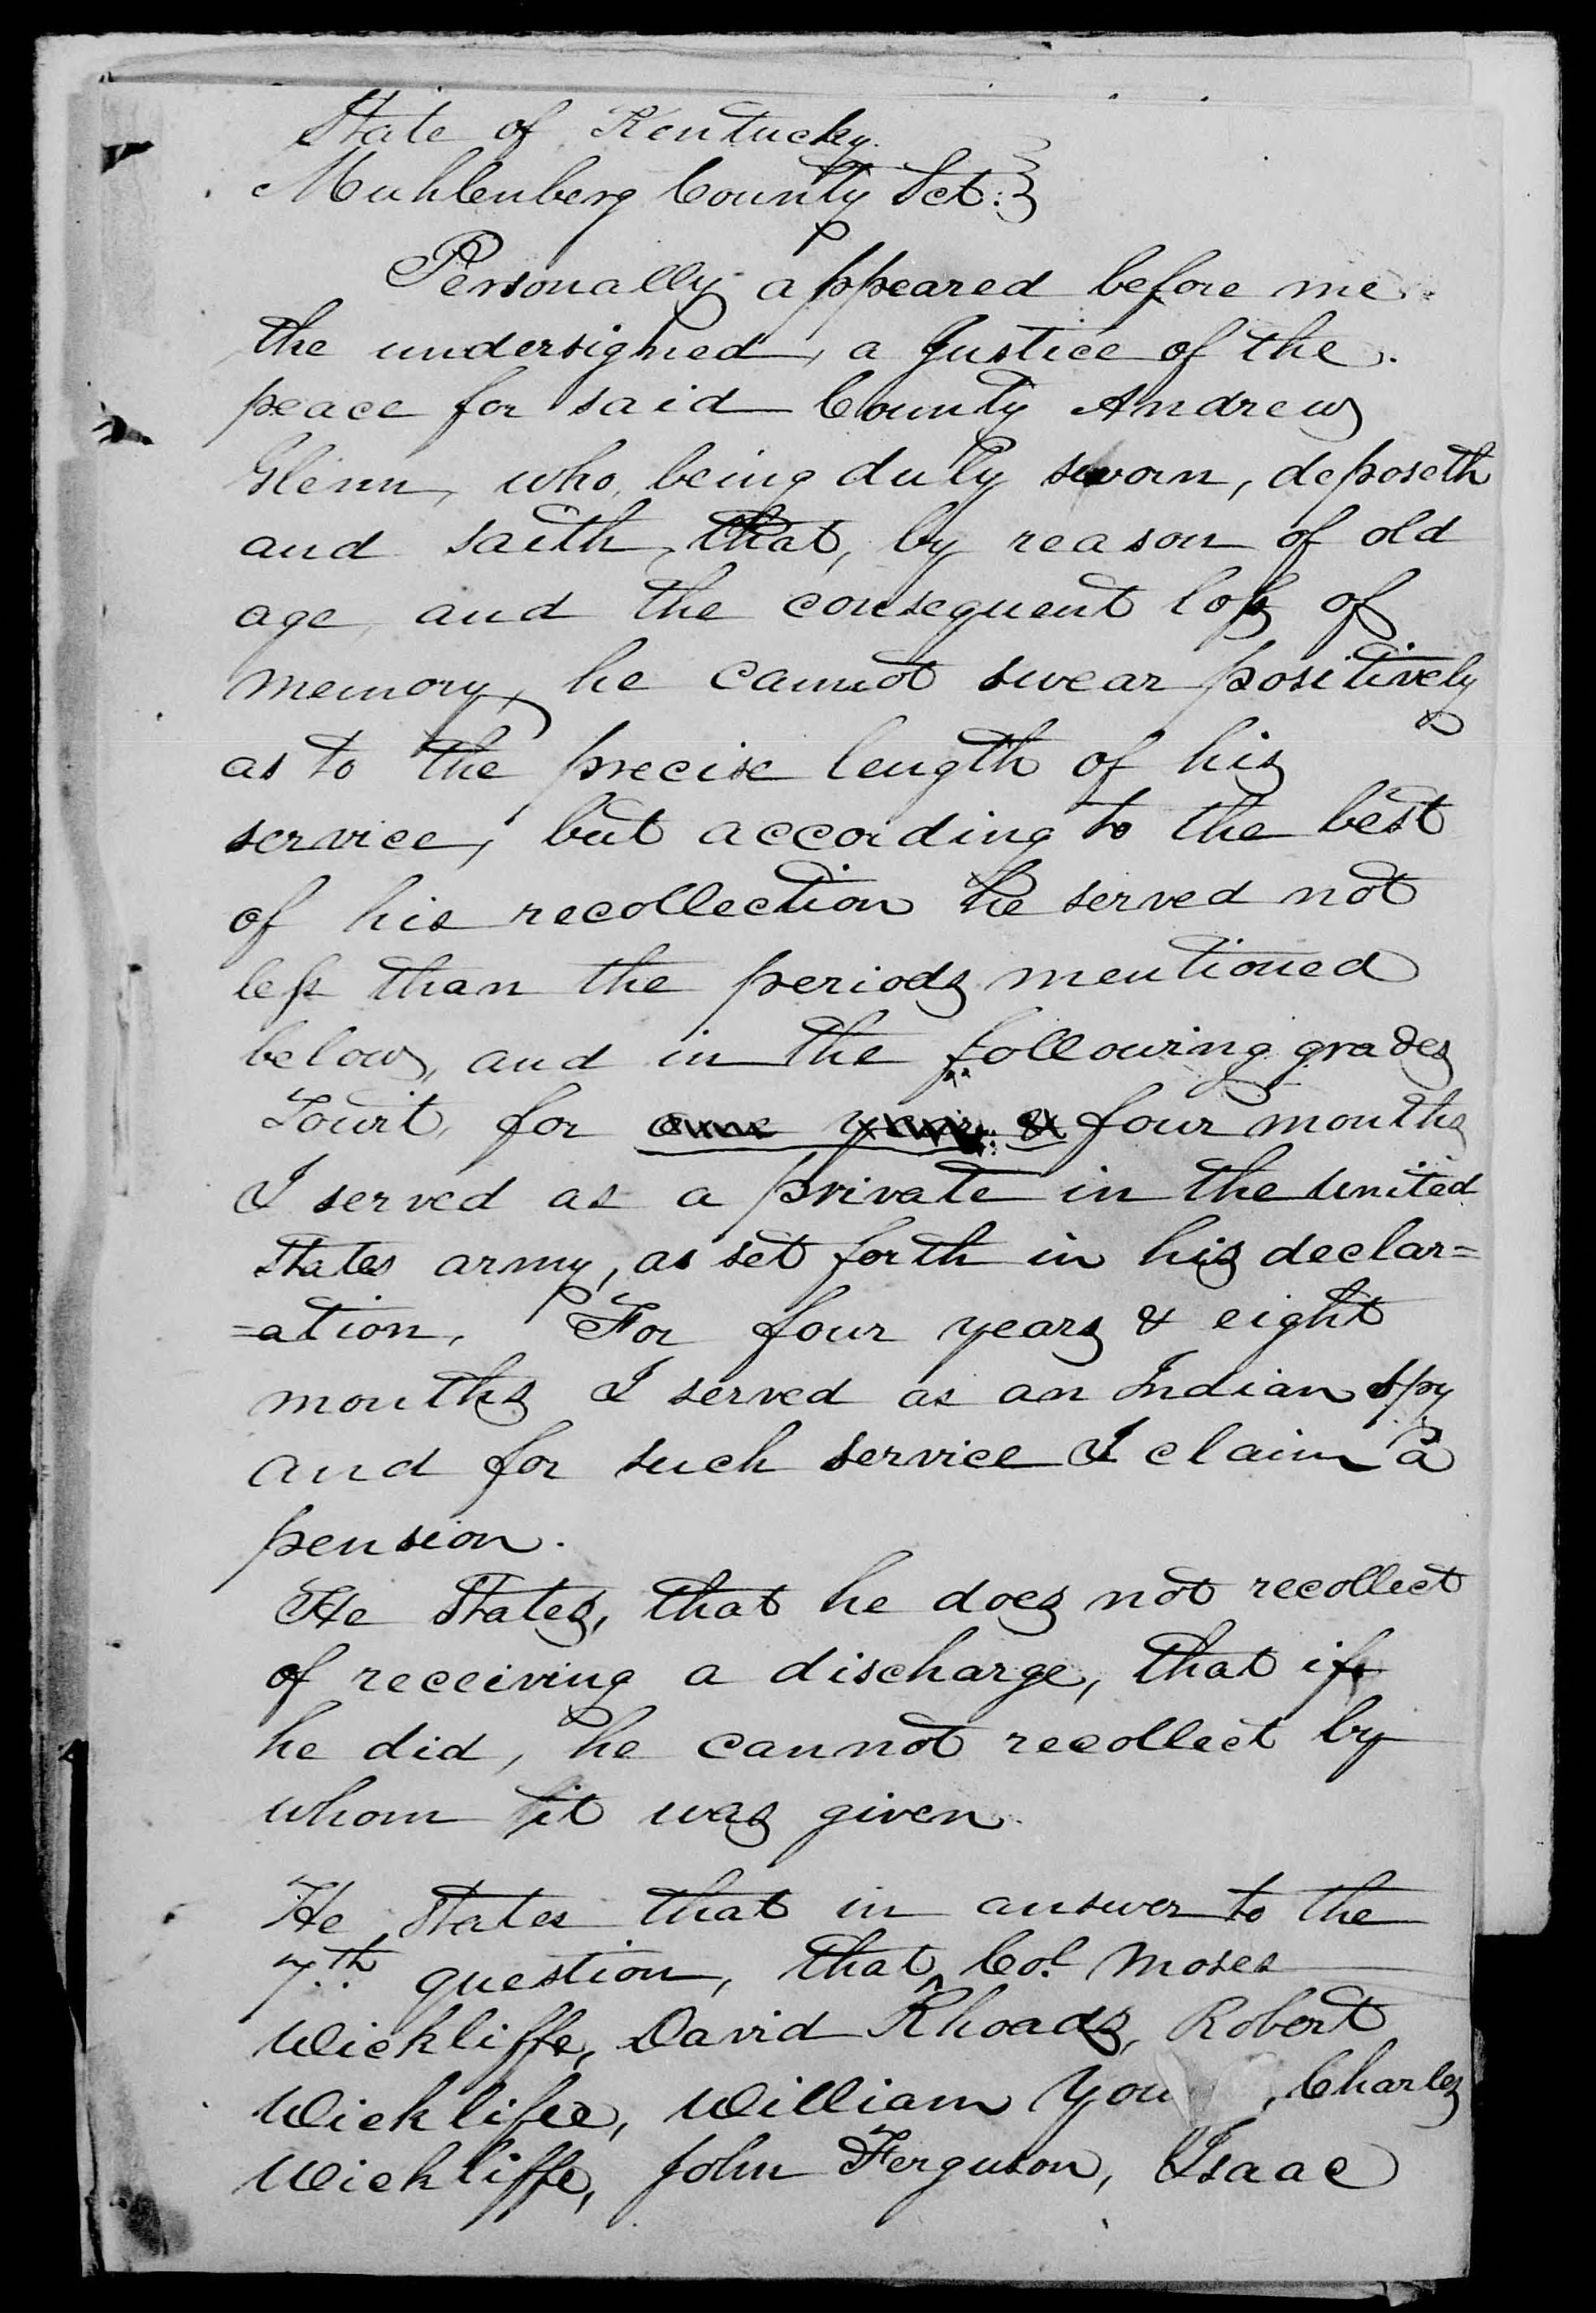 State of Kentucky
Muhlenberg County Sct. }
Personally appeared before me
the undersigned, a Justice of the
peace for said County Andrew
Glenn, who, being duly sworn, deposeth
and saith, that, by reason of old
age, and the consequent loss of
memory, he cannot swear positively
as to the precise length of his
service, but according to the best
of his recollection he served not
less than the periods mentioned
below, and in the following grades
Towit, for four months
I served as a private in the United
States army, as set forth in his declar=
=ation, For four years & eight
months I served as an Indian spy
and for such service I claim a
pension.
He States, that he does not recollect
of receiving a discharge, that if
he did, he cannot recollect by
whom it was given.
He States that in answer to the
7th question, that Col. Moses
Wickliffe, David Rhoads, Robert
Wickliffe, William You , Charles
Wickliffe, John Ferguson, Isaac